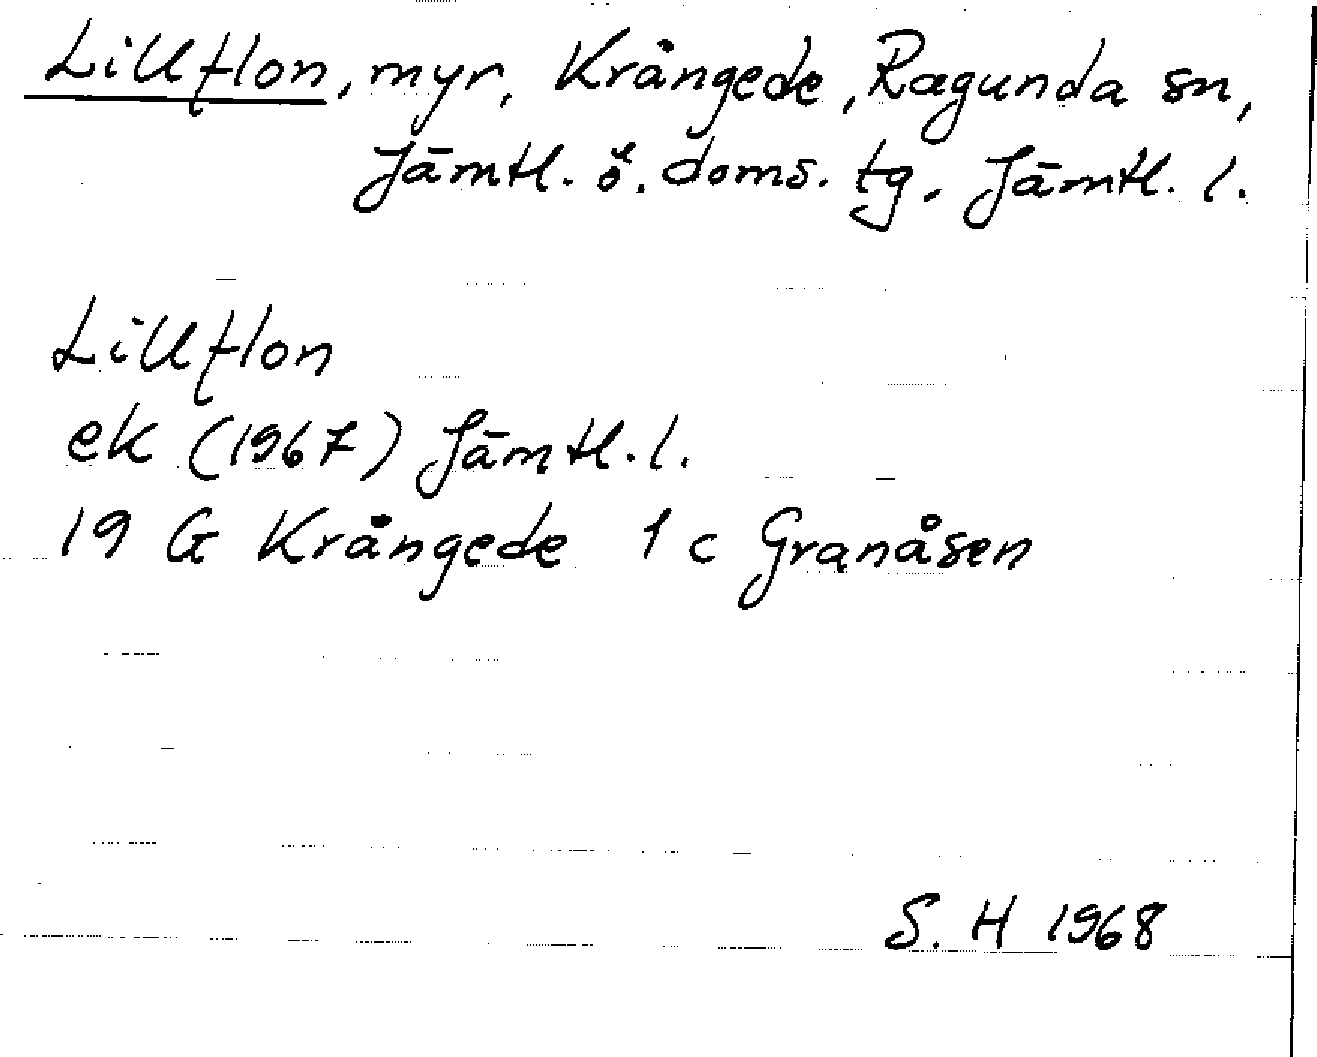 Lillflon, myr, Krångede, Ragunda sn,
Jämtl. ö. doms. tg. Jämtl. l.
Lillflon
ek (1967) Jämtl. l.
19 G Krångede 1 c Granåsen
S. H 1968